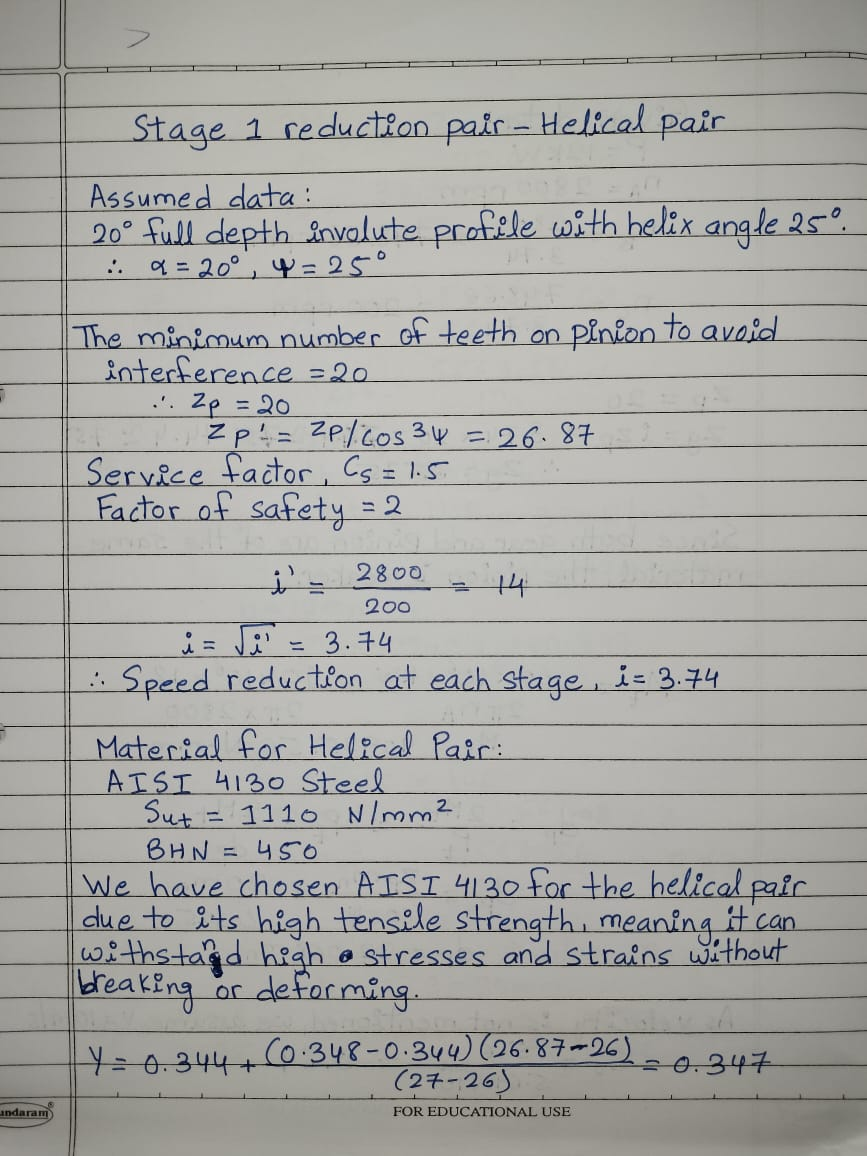 Stage 1 reduction pair - Helical pair
Assumed data :
20° full depth involute profile with helix angle 25°.
∴ α = 20°, ψ = 25°
The minimum number of teeth on pinion to avoid
interference = 20
∴ Zp = 20
Zp' = ZP/cos³ψ = 26.87
Service factor, Cs = 1.5
Factor of safety = 2
i' = 2800/200 = 14
i = √i' = 3.74
∴ Speed reduction at each stage, i = 3.74
Material for Helical Pair:
AISI 4130 Steel
Sut = 1110 N/mm²
BHN = 450
We have chosen AISI 4130 for the helical pair
due to its high tensile strength, meaning it can
withstand high stresses and strains without
breaking or deforming.
Y = 0.344 + (0.348-0.344)(26.87-26)/(27-26) = 0.347
undaram® FOR EDUCATIONAL USE